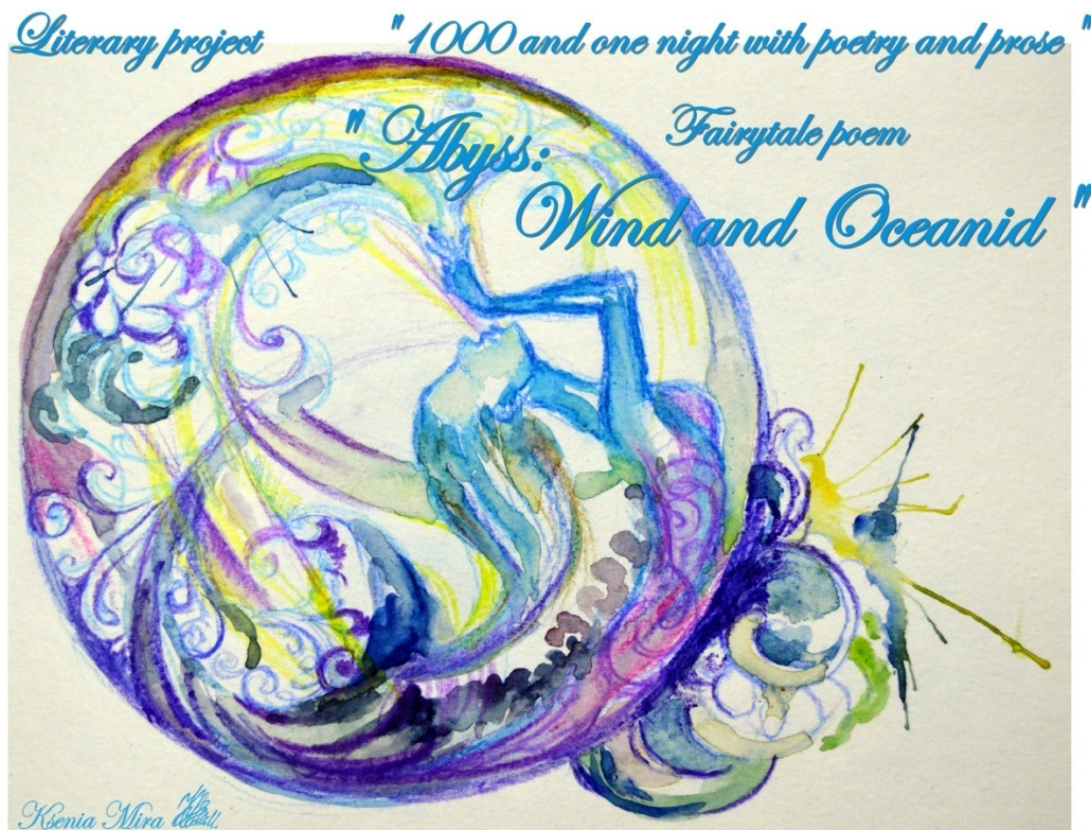 Literary project " 1000 and one night with poetry and prose "
Fairytale poem
" Abyss:
Wind and Oceanid "
Ksenia Mira